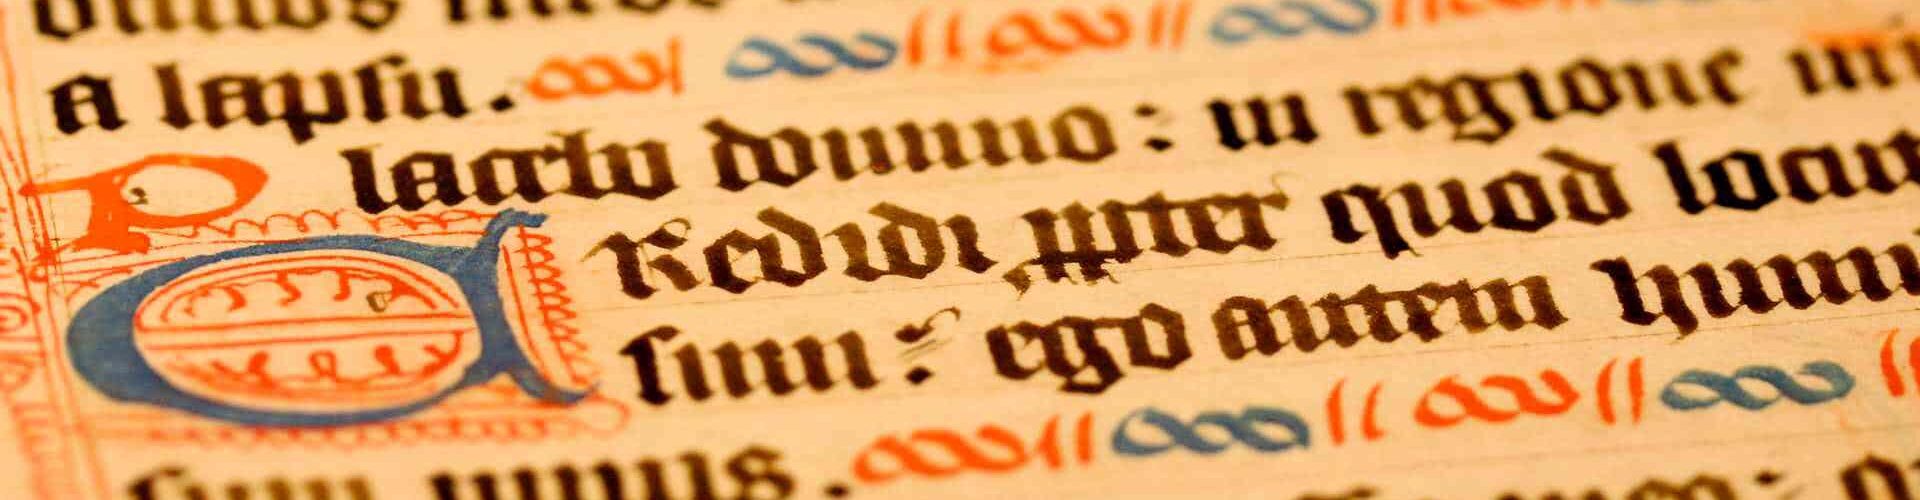 a lapsu.
Placebo domino : in regione
Credidi ꝓpter quod locut
sum : ego autem humi
sum nimis.